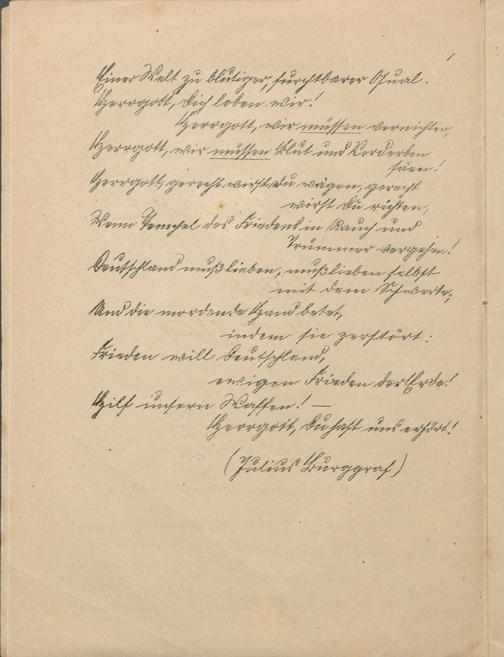 Einer Welt zu blutiger, furchtbarer Qual.
Herrgott, Dich loben wir!
Herrgott, wir müssen vernichten,
Herrgott, wir müssen Blut und Verderben
säen!
Herrgott, gerecht wirst du wägen, gerecht
wirst Du richten,
Wenn Tempel des Friedens in Rauch und
Trümmer vergehen!
Deutschland muß lieben, muß lieben selbst
mit dem Schwerte,
Und die mordende Hand betet,
indem sie zerstört:
Frieden will Deutschland,
ewigen Frieden der Erde!
Hilf unsern Waffen! –
Herrgott, Du hast uns erhört!
(Julius Burggraf)